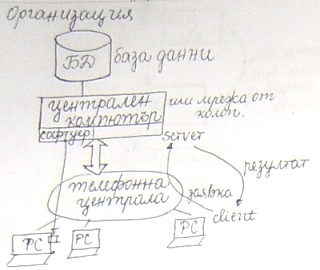 Организация
БД
база данни
централен
компютър
или мрежа от
комп.
софтуер
server
резултат
телефонна
централа
заявка
client
PC
PC
PC